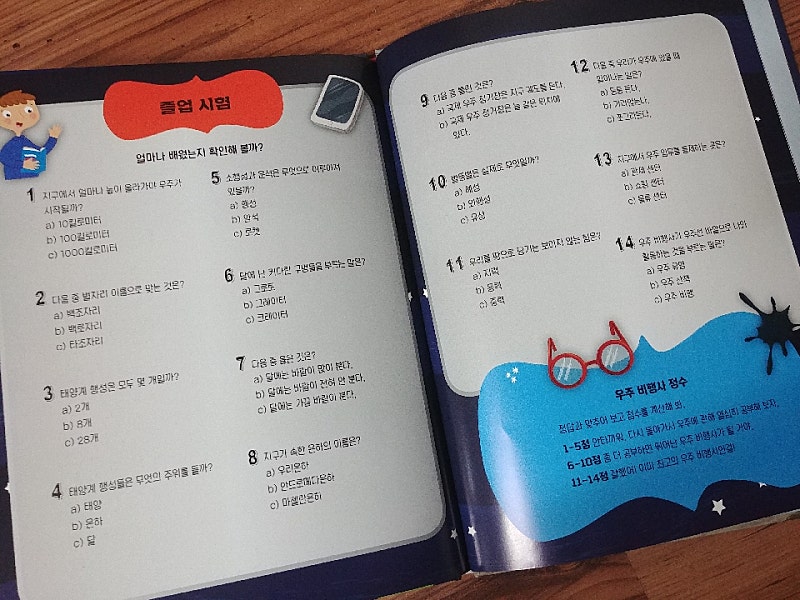 졸업 시험
얼마나 배웠는지 확인해 볼까?
1 지구에서 얼마나 높이 올라가야 우주가
시작될까?
a) 10킬로미터
b) 100킬로미터
c) 1000킬로미터
2 다음 중 별자리 이름으로 맞는 것은?
a) 백조자리
b) 백로자리
c) 타조자리
3 태양계 행성은 모두 몇 개일까?
a) 2개
b) 8개
c) 28개
4 태양계 행성들은 무엇의 주위를 돌까?
a) 태양
b) 은하
c) 달
5 소행성과 운석은 무엇으로 이루어져
있을까?
a) 행성
b) 암석
c) 로켓
6 달에 난 커다란 구멍들을 부르는 말은?
a) 그로토
b) 그레이터
c) 크레이터
7 다음 중 옳은 것은?
a) 달에는 바람이 많이 분다.
b) 달에는 바람이 전혀 안 분다.
c) 달에는 가끔 바람이 분다.
8 지구가 속한 은하의 이름은?
a) 우리은하
b) 안드로메다은하
c) 마젤란은하
9 다음 중 틀린 것은?
a) 국제 우주 정거장은 지구 궤도를 돈다.
b) 국제 우주 정거장은 늘 같은 위치에
있다.
10 별똥별은 실제로 무엇일까?
a) 혜성
b) 왜행성
c) 유성
11 우리를 땅으로 당기는 보이지 않는 힘은?
a) 지력
b) 풍력
c) 중력
12 다음 중 우리가 우주에 있을 때
일어나는 일은?
a) 둥둥 뜬다.
b) 가라앉는다.
c) 쪼그라든다.
13 지구에서 우주 임무를 통제하는 곳은?
a) 관제 센터
b) 쇼핑 센터
c) 물류 센터
14 우주 비행사가 우주선 바깥으로 나와
활동하는 것을 부르는 말은?
a) 우주 유영
b) 우주 산책
c) 우주 비행
우주 비행사 점수
정답과 맞추어 보고 점수를 계산해 봐.
1-5점 안타까워. 다시 돌아가서 우주에 관해 열심히 공부해 보자.
6-10점 좀 더 공부하면 뛰어난 우주 비행사가 될 거야.
11-14점 잘했어! 이미 최고의 우주 비행사인걸!